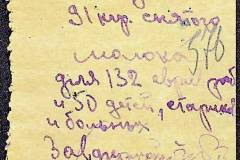 91 кгр. снятого
молока 576
для 132 евр. раб
и 50 детей, стариков
и больных
Зав.